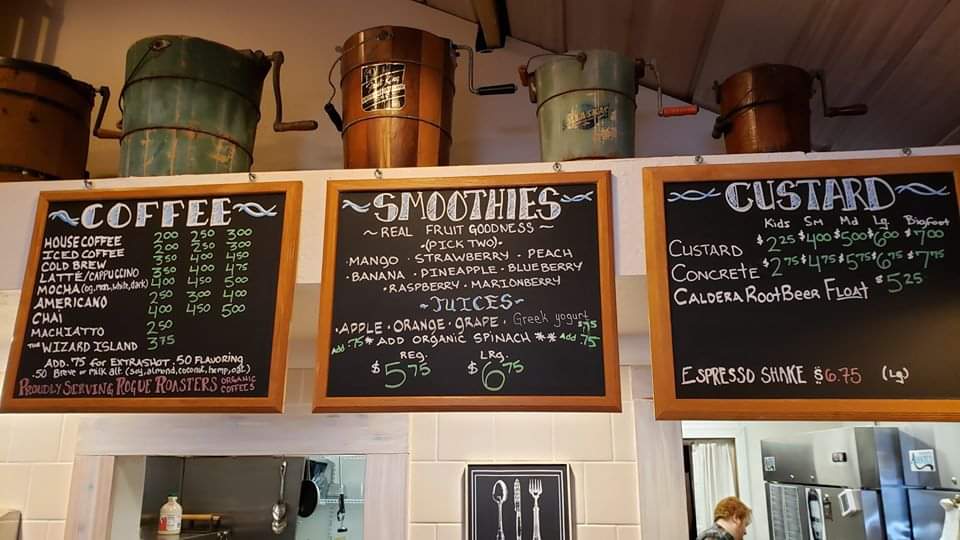 COFFEE
HOUSE COFFEE 2.00 2.50 3.00
ICED COFFEE 2.00 2.50 3.00
COLD BREW 3.50 4.00 4.50
LATTÉ/CAPPUCCINO 3.50 4.00 4.75
MOCHA (og, mex, white, dark) 4.00 4.50 5.00
AMERICANO 2.50 3.00 4.00
CHAI 4.00 4.50 5.00
MACHIATTO 2.50
THE WIZARD ISLAND 3.75
ADD .75 for EXTRA SHOT .50 FLAVORING
.50 Breve or milk alt. (soy, almond, coconut, hemp, oat)
PROUDLY SERVING ROGUE ROASTERS ORGANIC COFFEES
SMOOTHIES
~ REAL FRUIT GOODNESS ~
·(PICK TWO)·
·MANGO · STRAWBERRY · PEACH
·BANANA · PINEAPPLE · BLUEBERRY
·RASPBERRY · MARIONBERRY
~JUICES~
·APPLE · ORANGE · GRAPE · Greek yogurt $.75
Add .75 * ADD ORGANIC SPINACH ** Add .75
REG. LRG.
$5.75 $6.75
CUSTARD
Kids Sm Md Lg BigFoot
CUSTARD $2.25 $4.00 $5.00 $6.00 $7.00
CONCRETE $2.75 $4.75 $5.75 $6.75 $7.75
CALDERA ROOTBEER FLOAT $5.25
ESPRESSO SHAKE $6.75 (Lg)